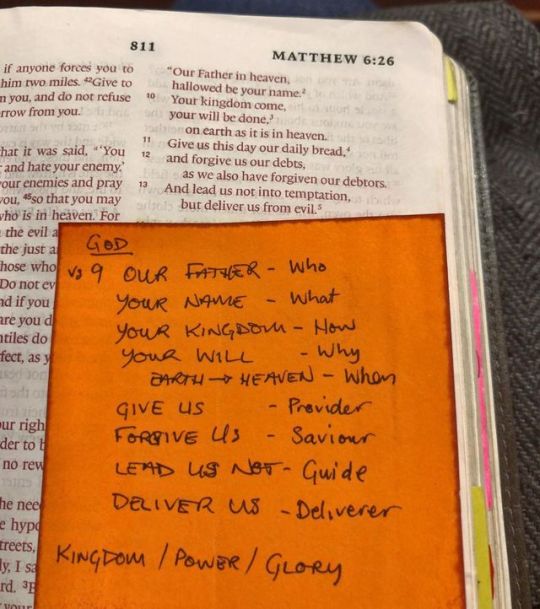 811
MATTHEW 6:26
if anyone forces you to
him two miles. ⁴²Give to
n you, and do not refuse
rrow from you.
hat it was said, “‘You
and hate your enemy.’
your enemies and pray
you, ⁴⁵so that you may
who is in heaven. For
the evil a
the just a
hose who
Do not ev
nd if you
are you d
ntiles do
fect, as y
ur righ
der to b
no rew
he nee
e hypo
treets,
ly, I sa
rd.
your
“Our Father in heaven,
hallowed be your name.²
10 Your kingdom come,
your will be done,³
on earth as it is in heaven.
11 Give us this day our daily bread,⁴
12 and forgive us our debts,
as we also have forgiven our debtors.
13 And lead us not into temptation,
but deliver us from evil.⁵
GOD
vs 9 OUR FATHER - Who
YOUR NAME - What
YOUR KINGDOM - How
YOUR WILL - Why
EARTH → HEAVEN - When
GIVE US - Provider
FORGIVE US - Saviour
LEAD US NOT - Guide
DELIVER US - Deliverer
KINGDOM / POWER / GLORY